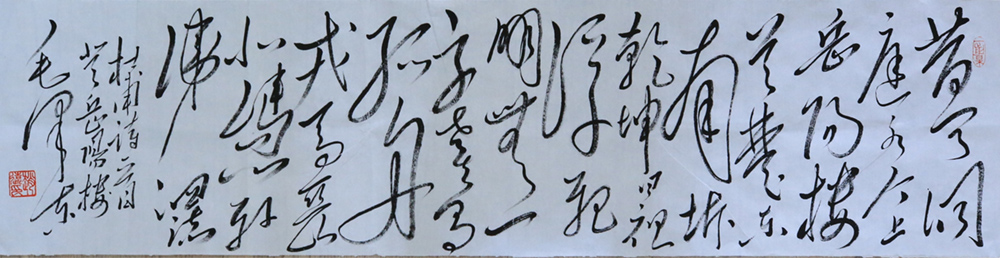 昔闻洞
庭水今上
岳阳楼
吴楚东
南坼
乾坤日夜
浮亲
朋无一
字老
孤舟
戎马关山
北凭轩
涕泗流
杜甫诗一首
登岳阳楼
毛泽东